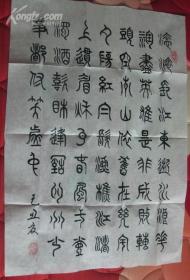 滚滚长江东逝水浪花
淘尽英雄是非成败转
头空青山依旧在几度
夕阳红白发渔樵江渚
上惯看秋月春风一壶
浊酒喜相逢古今多少
事都付笑谈中 己丑